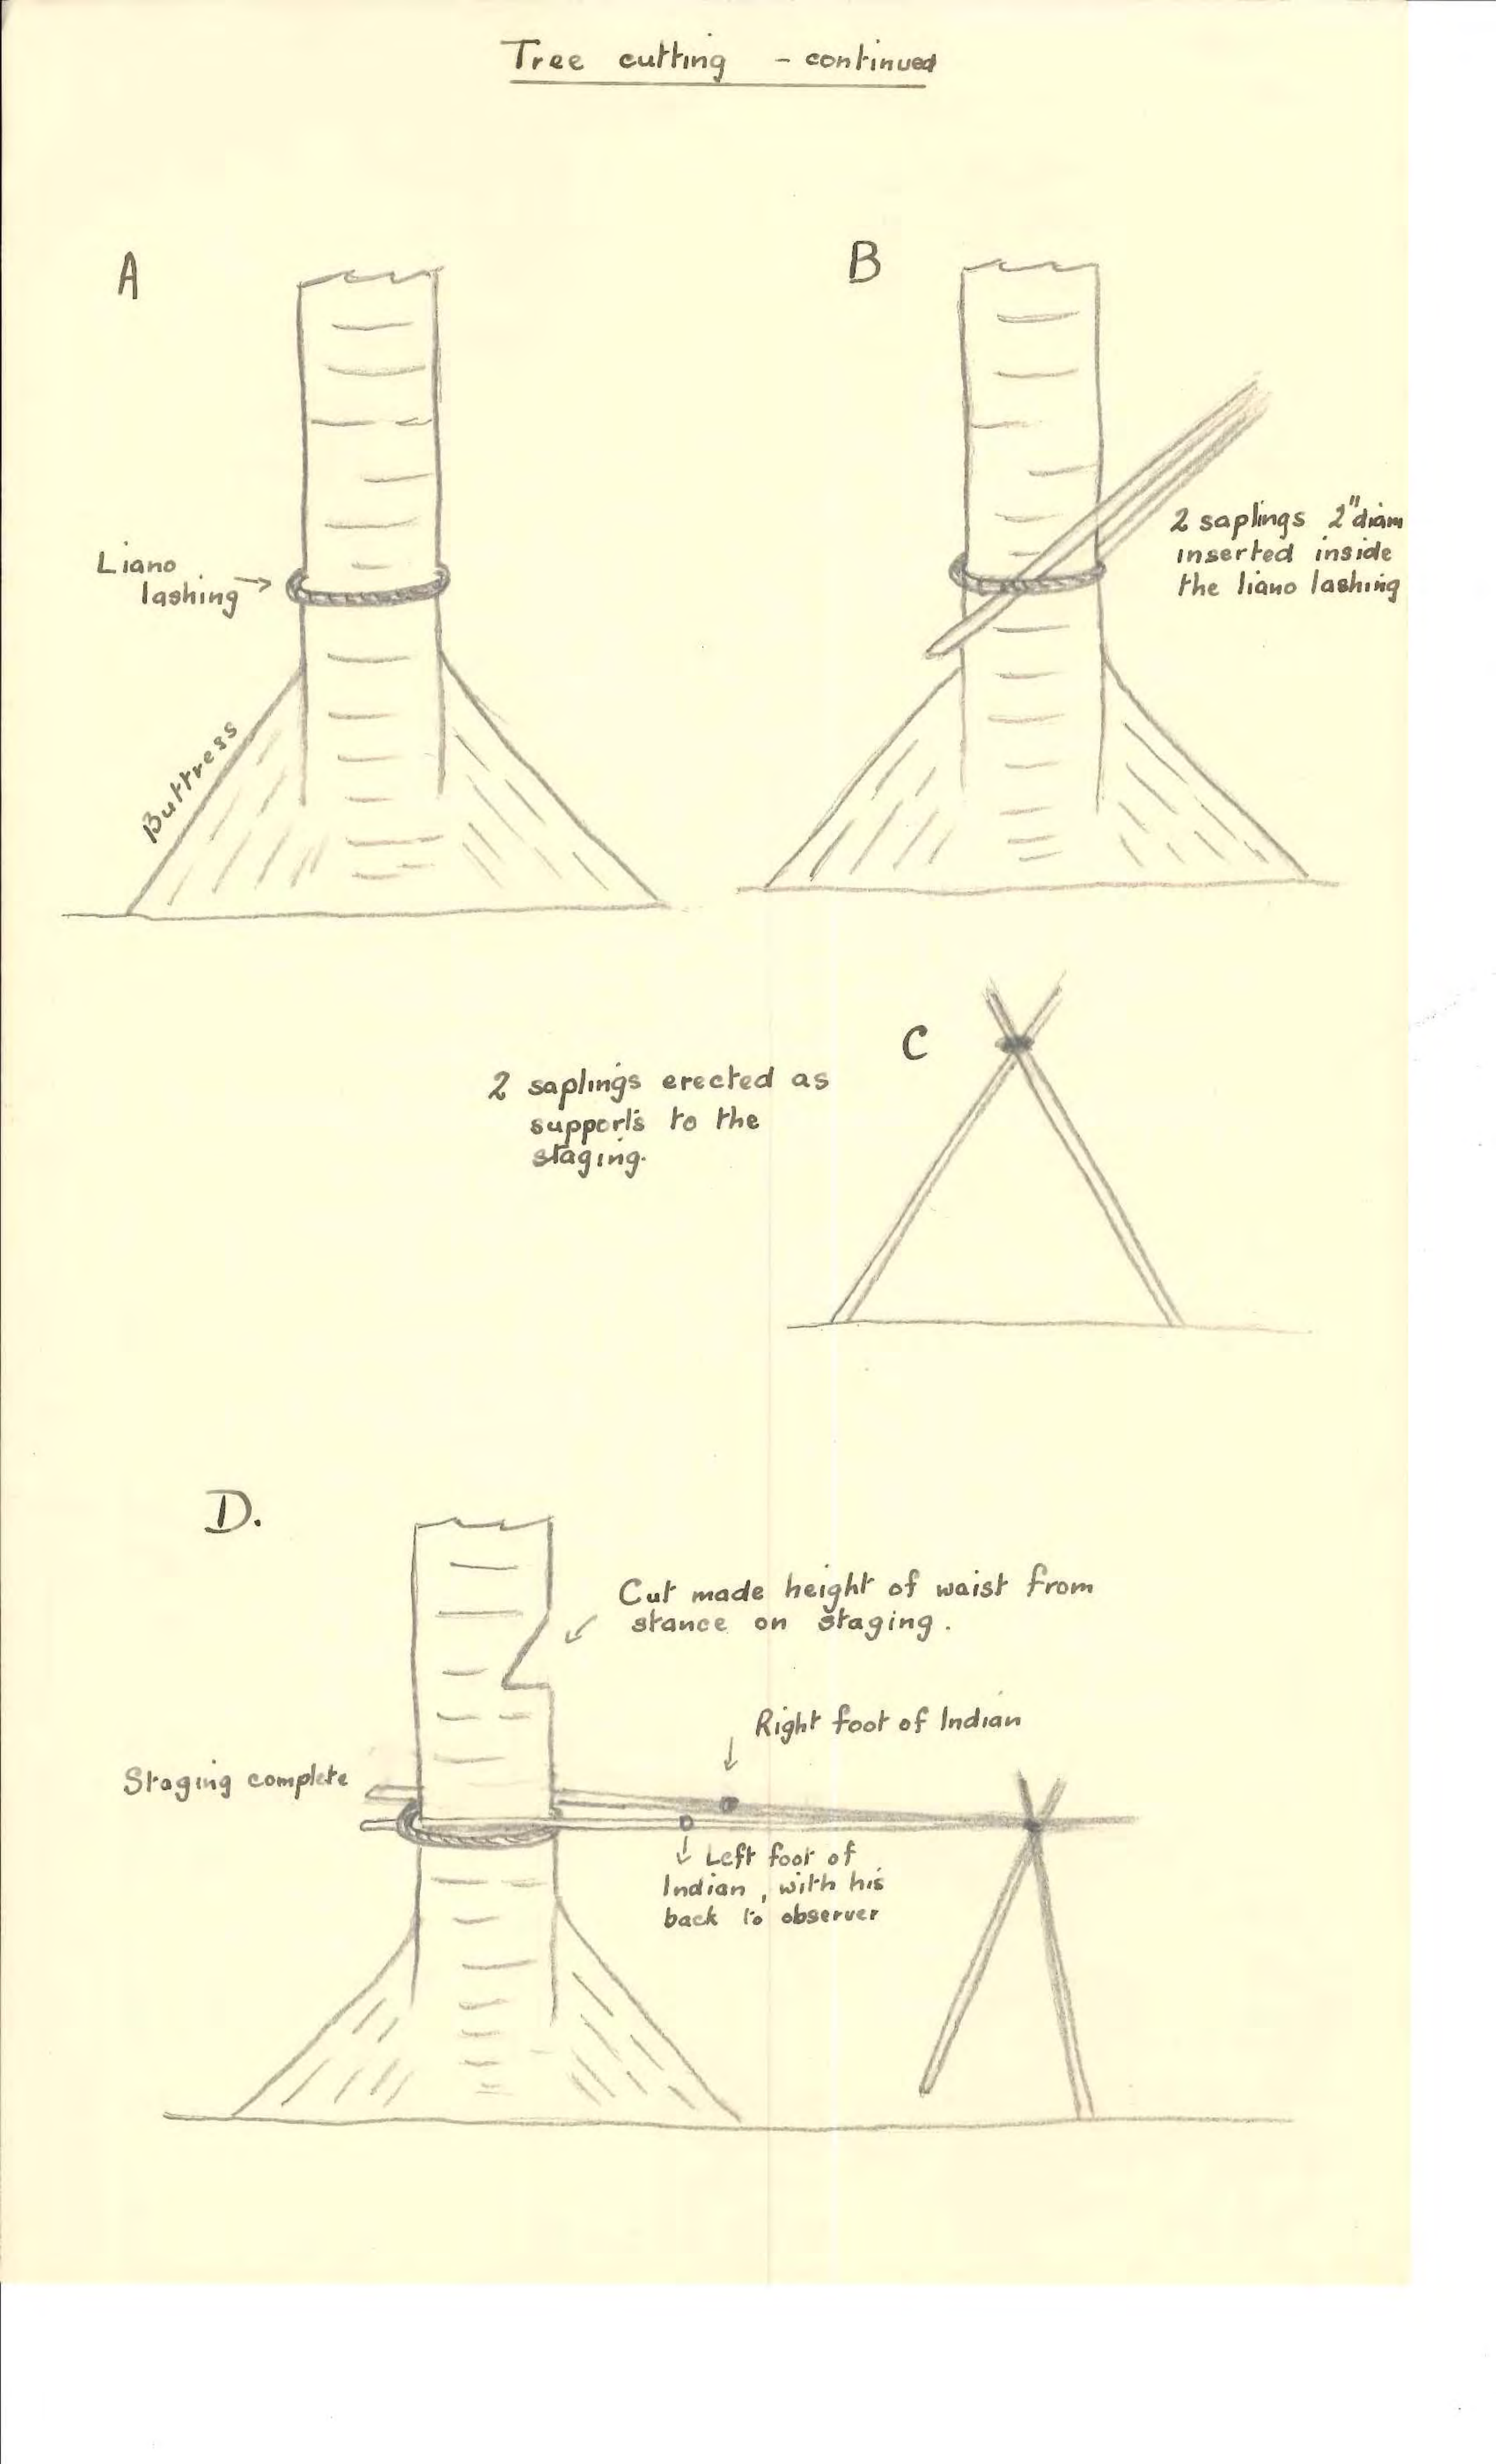 Tree cutting - continued
A
B
Liano
lashing
Buttress
2 saplings 2" diam
inserted inside
the liano lashing
C
2 saplings erected as
supports to the
staging.
D.
Cut made height of waist from
stance on staging.
Right foot of Indian
Staging complete
Left foot of
Indian, with his
back to observer